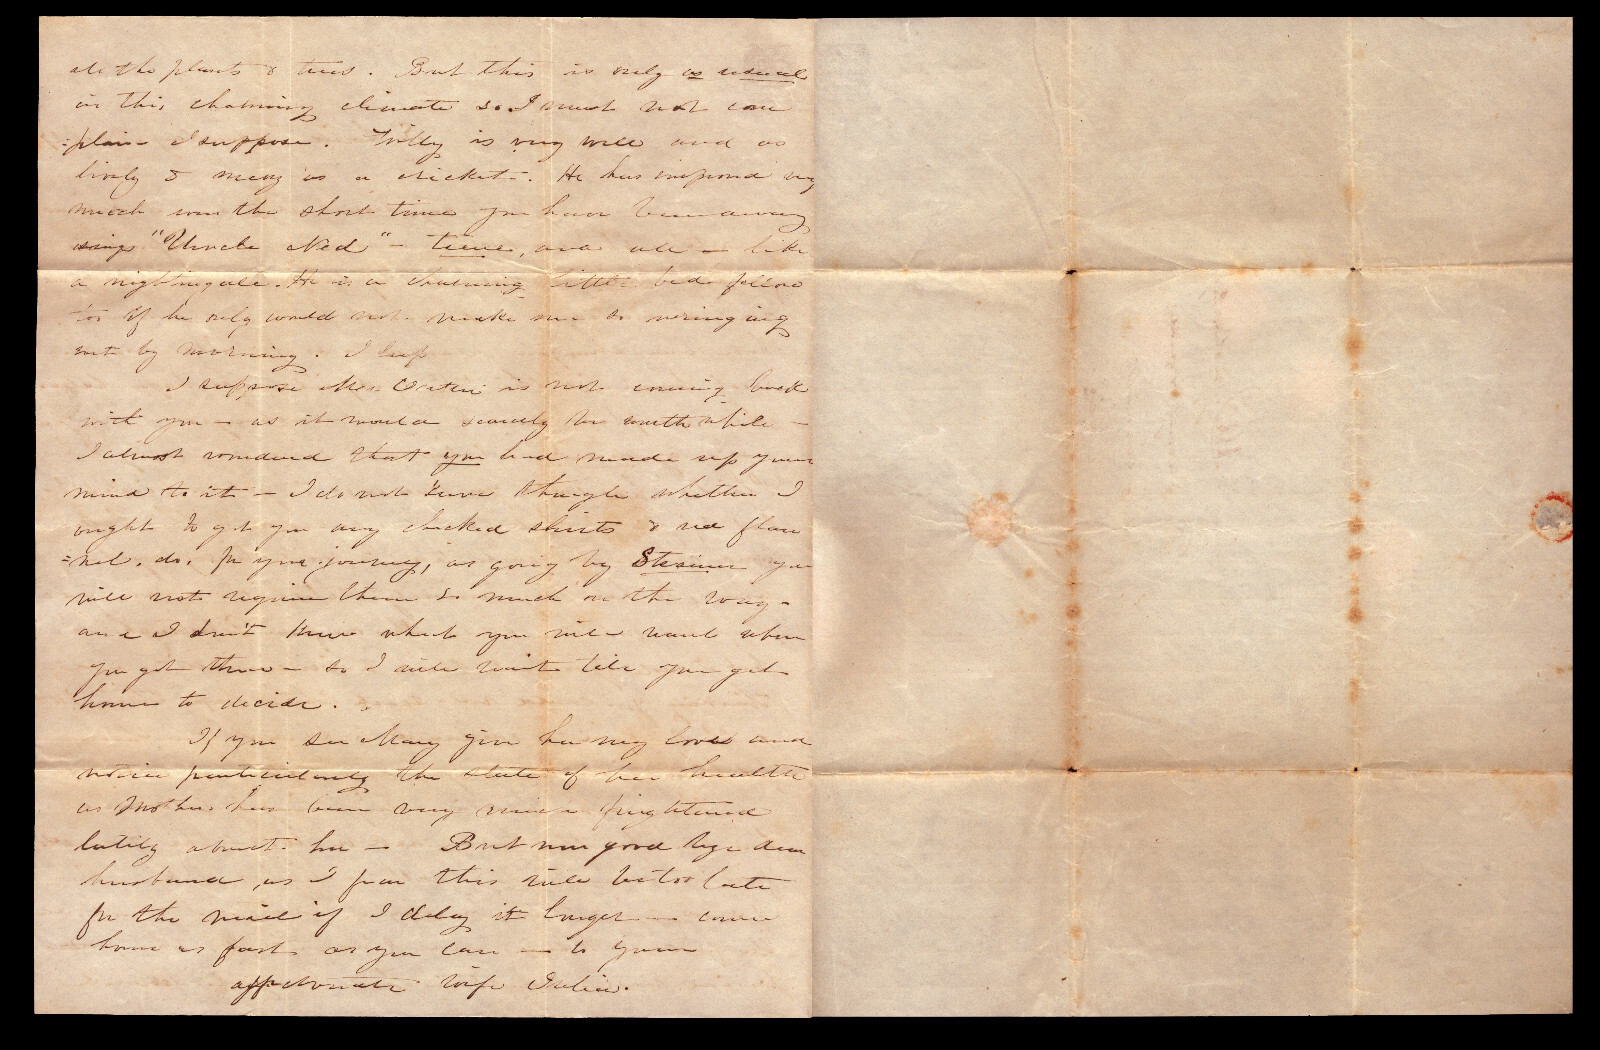 all the plants & trees. But this is only as usual
in this charming climate so I must not com
=plain I suppose. Willy is very well and as
lively & merry as a cricket. He has improved very
much even the short time you have been away
sings "Uncle Ned" - tune, and all - like
a nightingale. He is a charming little bed fellow
too if he only would not make me so wringing
wet by morning. I
I suppose Mrs. is not coming back
with you - as it would scarcely be worth while -
I almost wondered that you had made up your
mind to it - I do not know though whether I
ought to get you any checked shirts & red flan
=nel. do. for your journey, as going by Steamer you
will not require them so much on the way -
and I don't know what you will want when
you get there - so I will wait till you get
home to decide.
If you see Mary give her my love and
notice particularly the state of her health
as Mother has been very much frightened
lately about her - But now good bye dear
husband, as I fear this will be too late
for the mail if I delay it longer - come
home as fast as you can - to your
affectionate wife Julia.